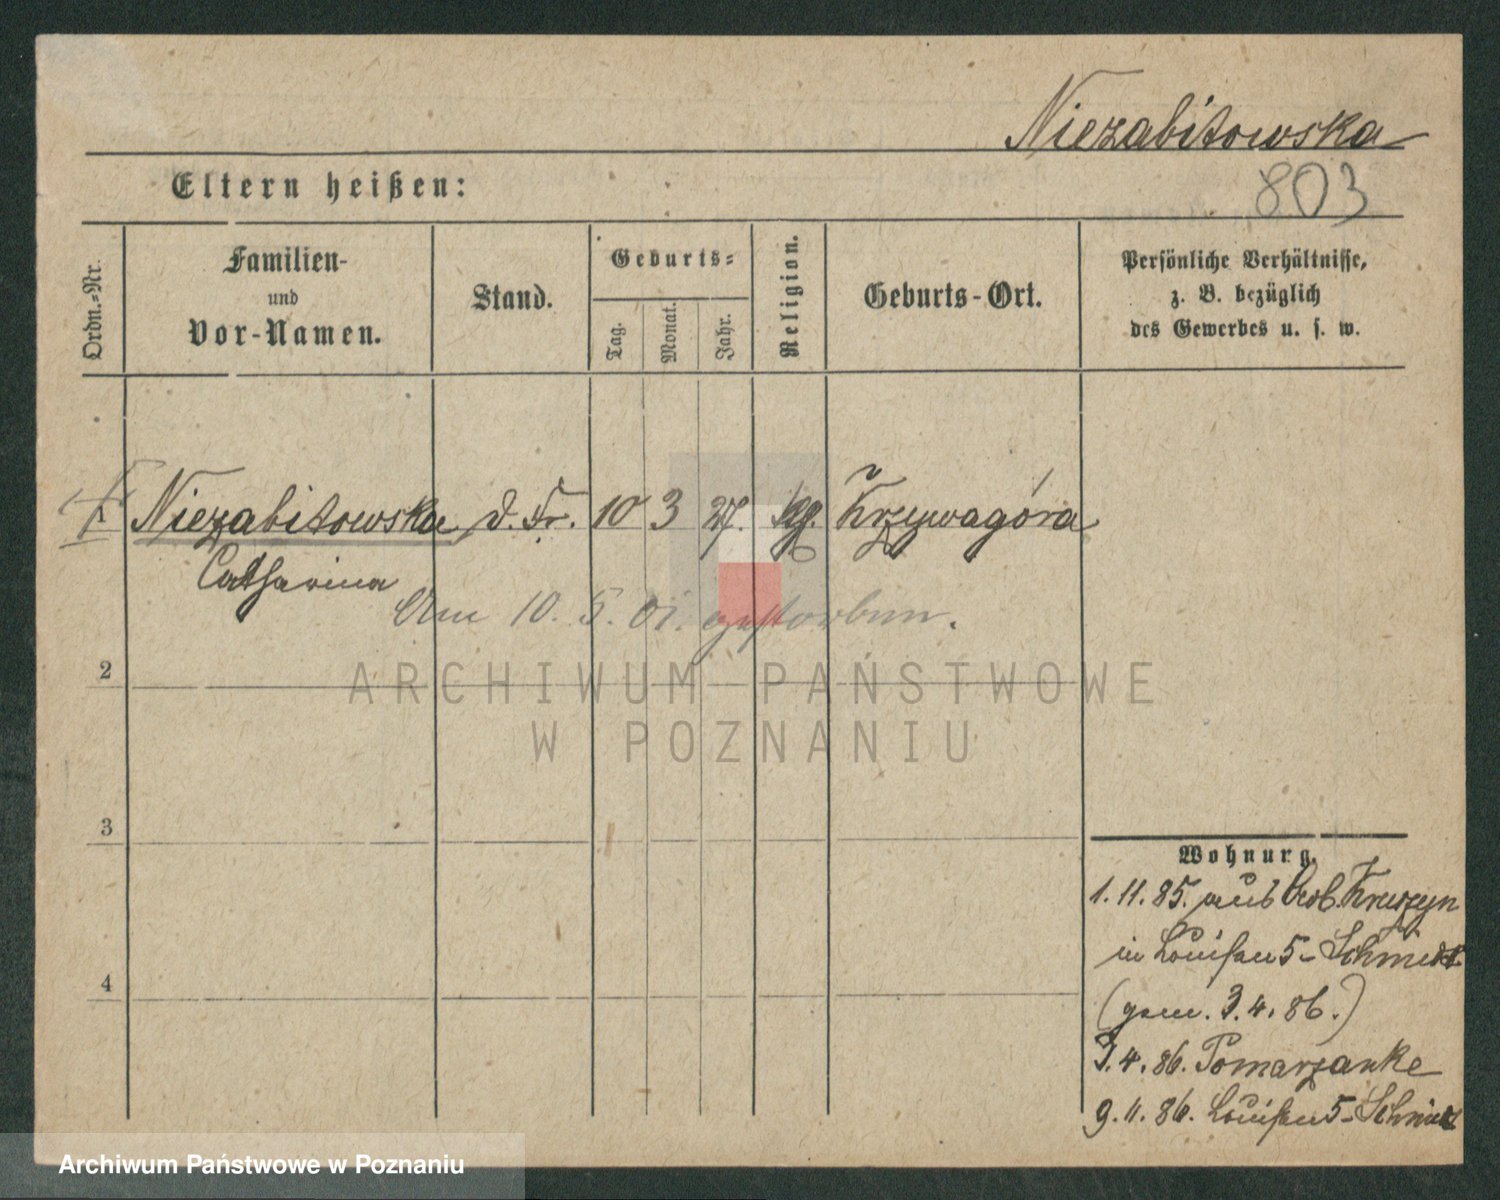 Niezabitowska
Eltern heißen:
803
Ordn.=Nr.
Familien-
und
Vor-Namen.
Stand.
Geburts=
Tag.
Monat.
Jahr.
Religion.
Geburts-Ort.
Persönliche Verhältnisse,
z. B. bezüglich
des Gewerbes u. s. w.
1 Niezabitowska d. Fr. 10 3 27. kg. Krzywagóra
Catharina
Am 10. 5. 01. gestorben.
2
ARCHIWUM PAŃSTWOWE
W POZNANIU
3
4
Wohnurg.
1. 11. 85. aus
in Louisen 5 - Schmidt
(gem. 3. 4. 86.)
3. 4. 86. Pomarzanke
9. 11. 86. Louisen 5 - Schmidt
Archiwum Państwowe w Poznaniu